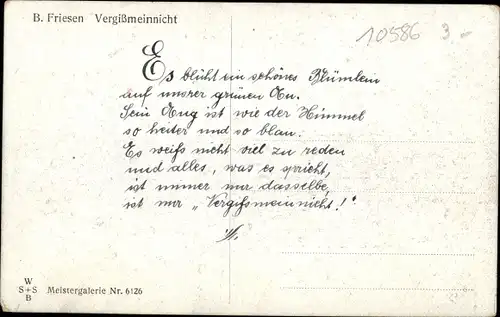 B. Friesen Vergißmeinnicht
10586 3.-
Es blüht ein schönes Blümlein
auf unsrer grünen Au.
Sein Aug ist wie der Himmel
so heiter und so blau.
Es weiß nicht viel zu reden
und alles, was es spricht,
ist immer nur dasselbe,
ist nur „Vergißmeinnicht!"
W
S+S
B
Meistergalerie Nr. 6126